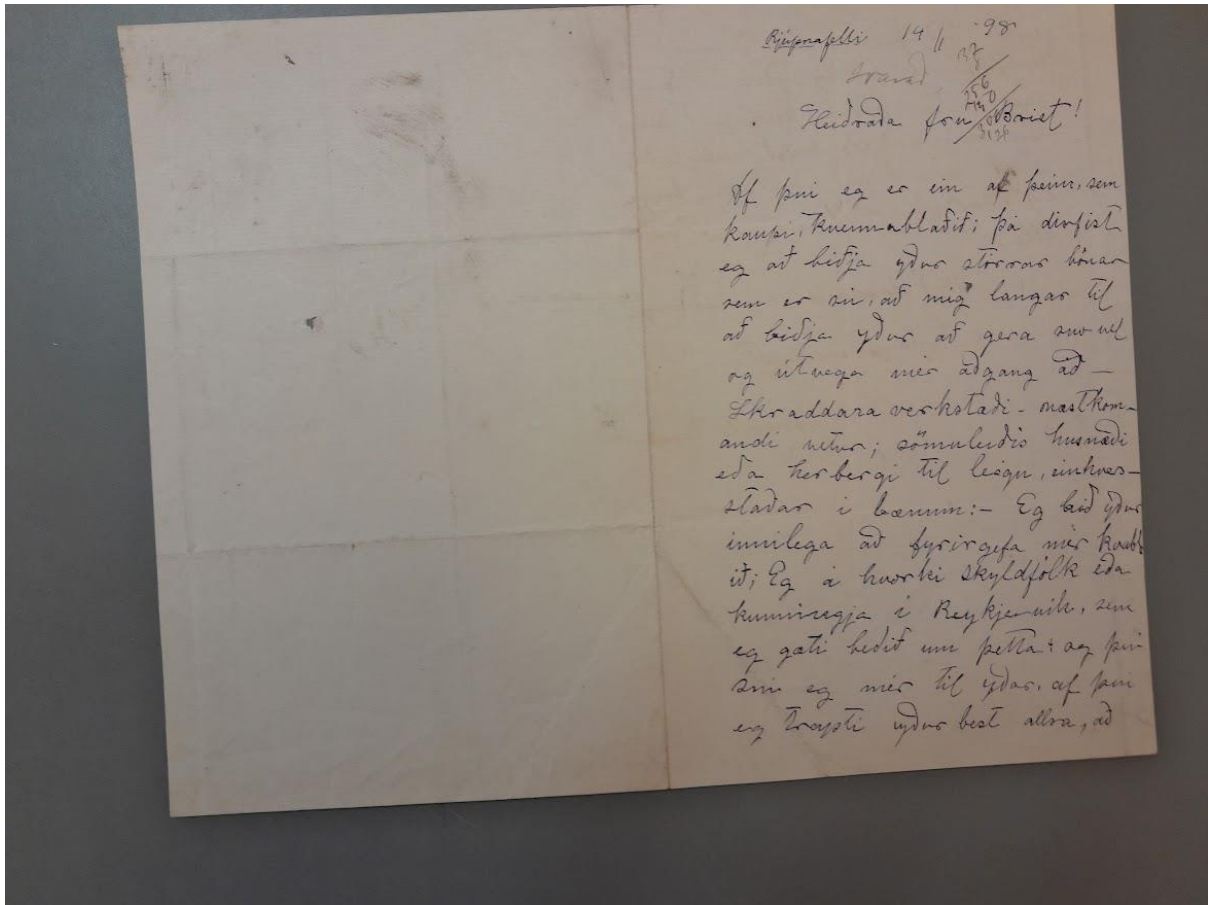 Rjúpnafelli 19/11 -98
Svarað
Heiðraða frú Briet!
Af því eg er ein af þeim, sem
kaupi, kvennablaðið; þá dirfist
eg að biðja yður stórrar bónar
sem er sú, að mig langar til
að biðja yður að gera svo vel
og útvega mér aðgang að —
Skraddara verkstæði - næstkom-
andi vetur; sömuleiðis husnæði
eða herbergi til leigu, einhvers-
staðar i bænum:- Eg bið yður
innilega að fyrirgefa mér kvabb
ið; Eg á hvorki skyldfólk eða
kunningja i Reykjavik, sem
eg gæti beðið um þetta: og því
sní eg mér til yðar, af því
eg trapsti yður best allra, að